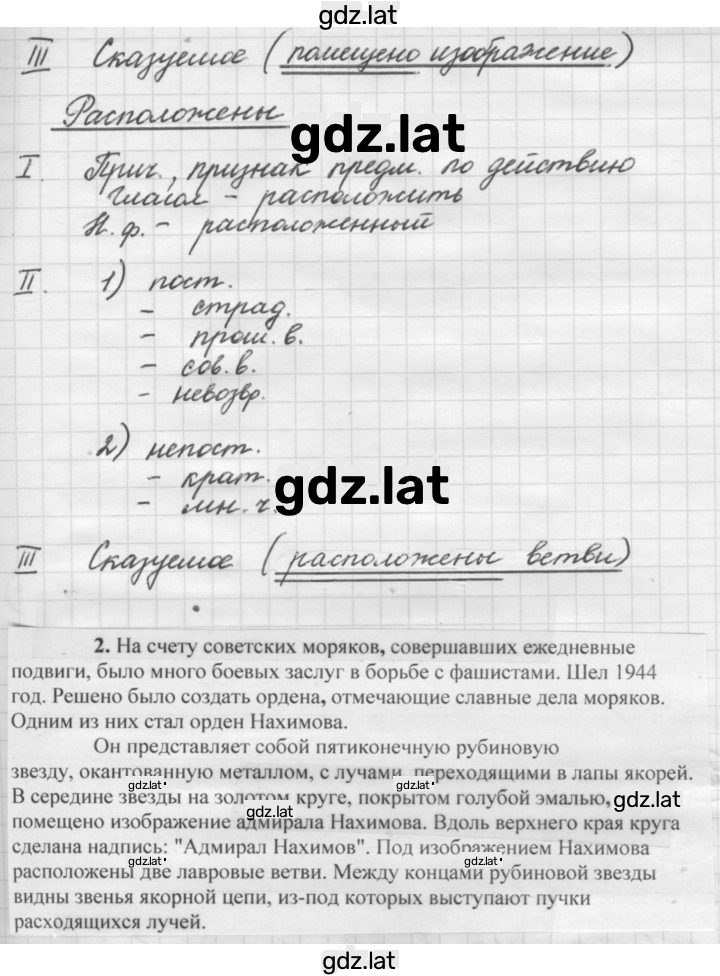 gdz.lat
III Сказуемое (помещено изображение)
Расположены
gdz.lat
I. Прич., признак предм. по действию
Глагол - расположить
Н.ф. - расположенный
II. 1) пост.
- страд.
- прош. в.
- сов. в.
- невозвр.
2) непост.
- крат.
gdz.lat
- мн. ч.
III Сказуемое (расположены ветви)
2. На счету советских моряков, совершавших ежедневные
подвиги, было много боевых заслуг в борьбе с фашистами. Шел 1944
год. Решено было создать ордена, отмечающие славные дела моряков.
Одним из них стал орден Нахимова.
Он представляет собой пятиконечную рубиновую
звезду, окантованную металлом, с лучами, переходящими в лапы якорей.
gdz.lat
gdz.lat
В середине звезды на золотом круге, покрытом голубой эмалью,
gdz.lat
помещено изображение адмирала Нахимова. Вдоль верхнего края круга
gdz.lat
сделана надпись: "Адмирал Нахимов". Под изображением Нахимова
gdz.lat
gdz.lat
расположены две лавровые ветви. Между концами рубиновой звезды
видны звенья якорной цепи, из-под которых выступают пучки
gdz.lat
расходящихся лучей.
gdz.lat